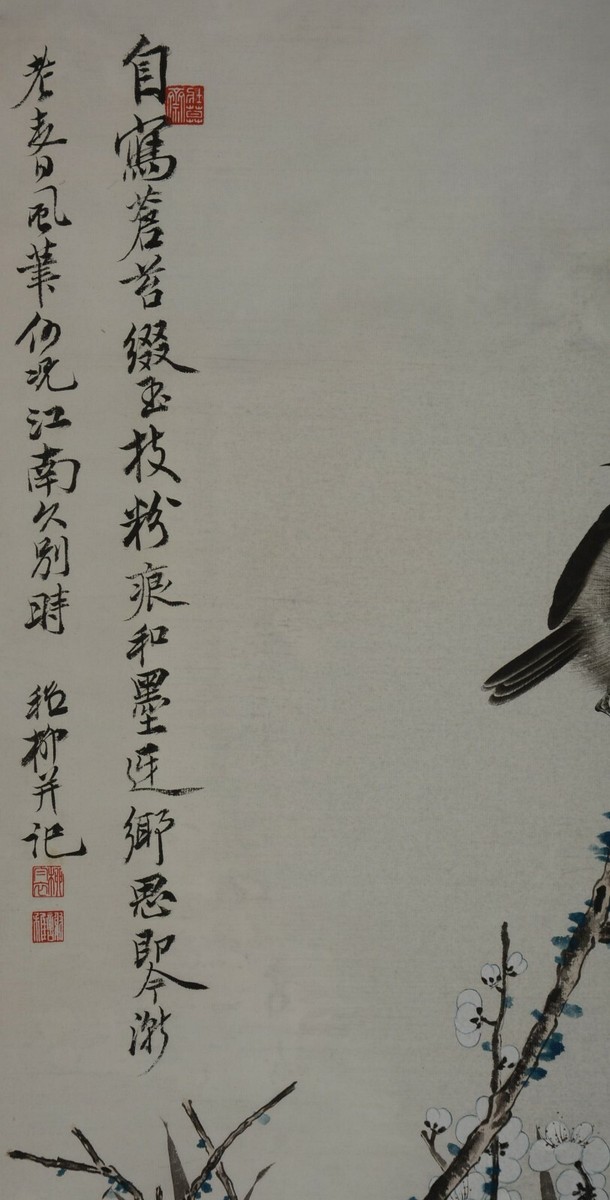 自寫蒼苔綴玉枝粉痕和墨鄉思即今漸
老春風筆何況江南久別時 稚柳并記